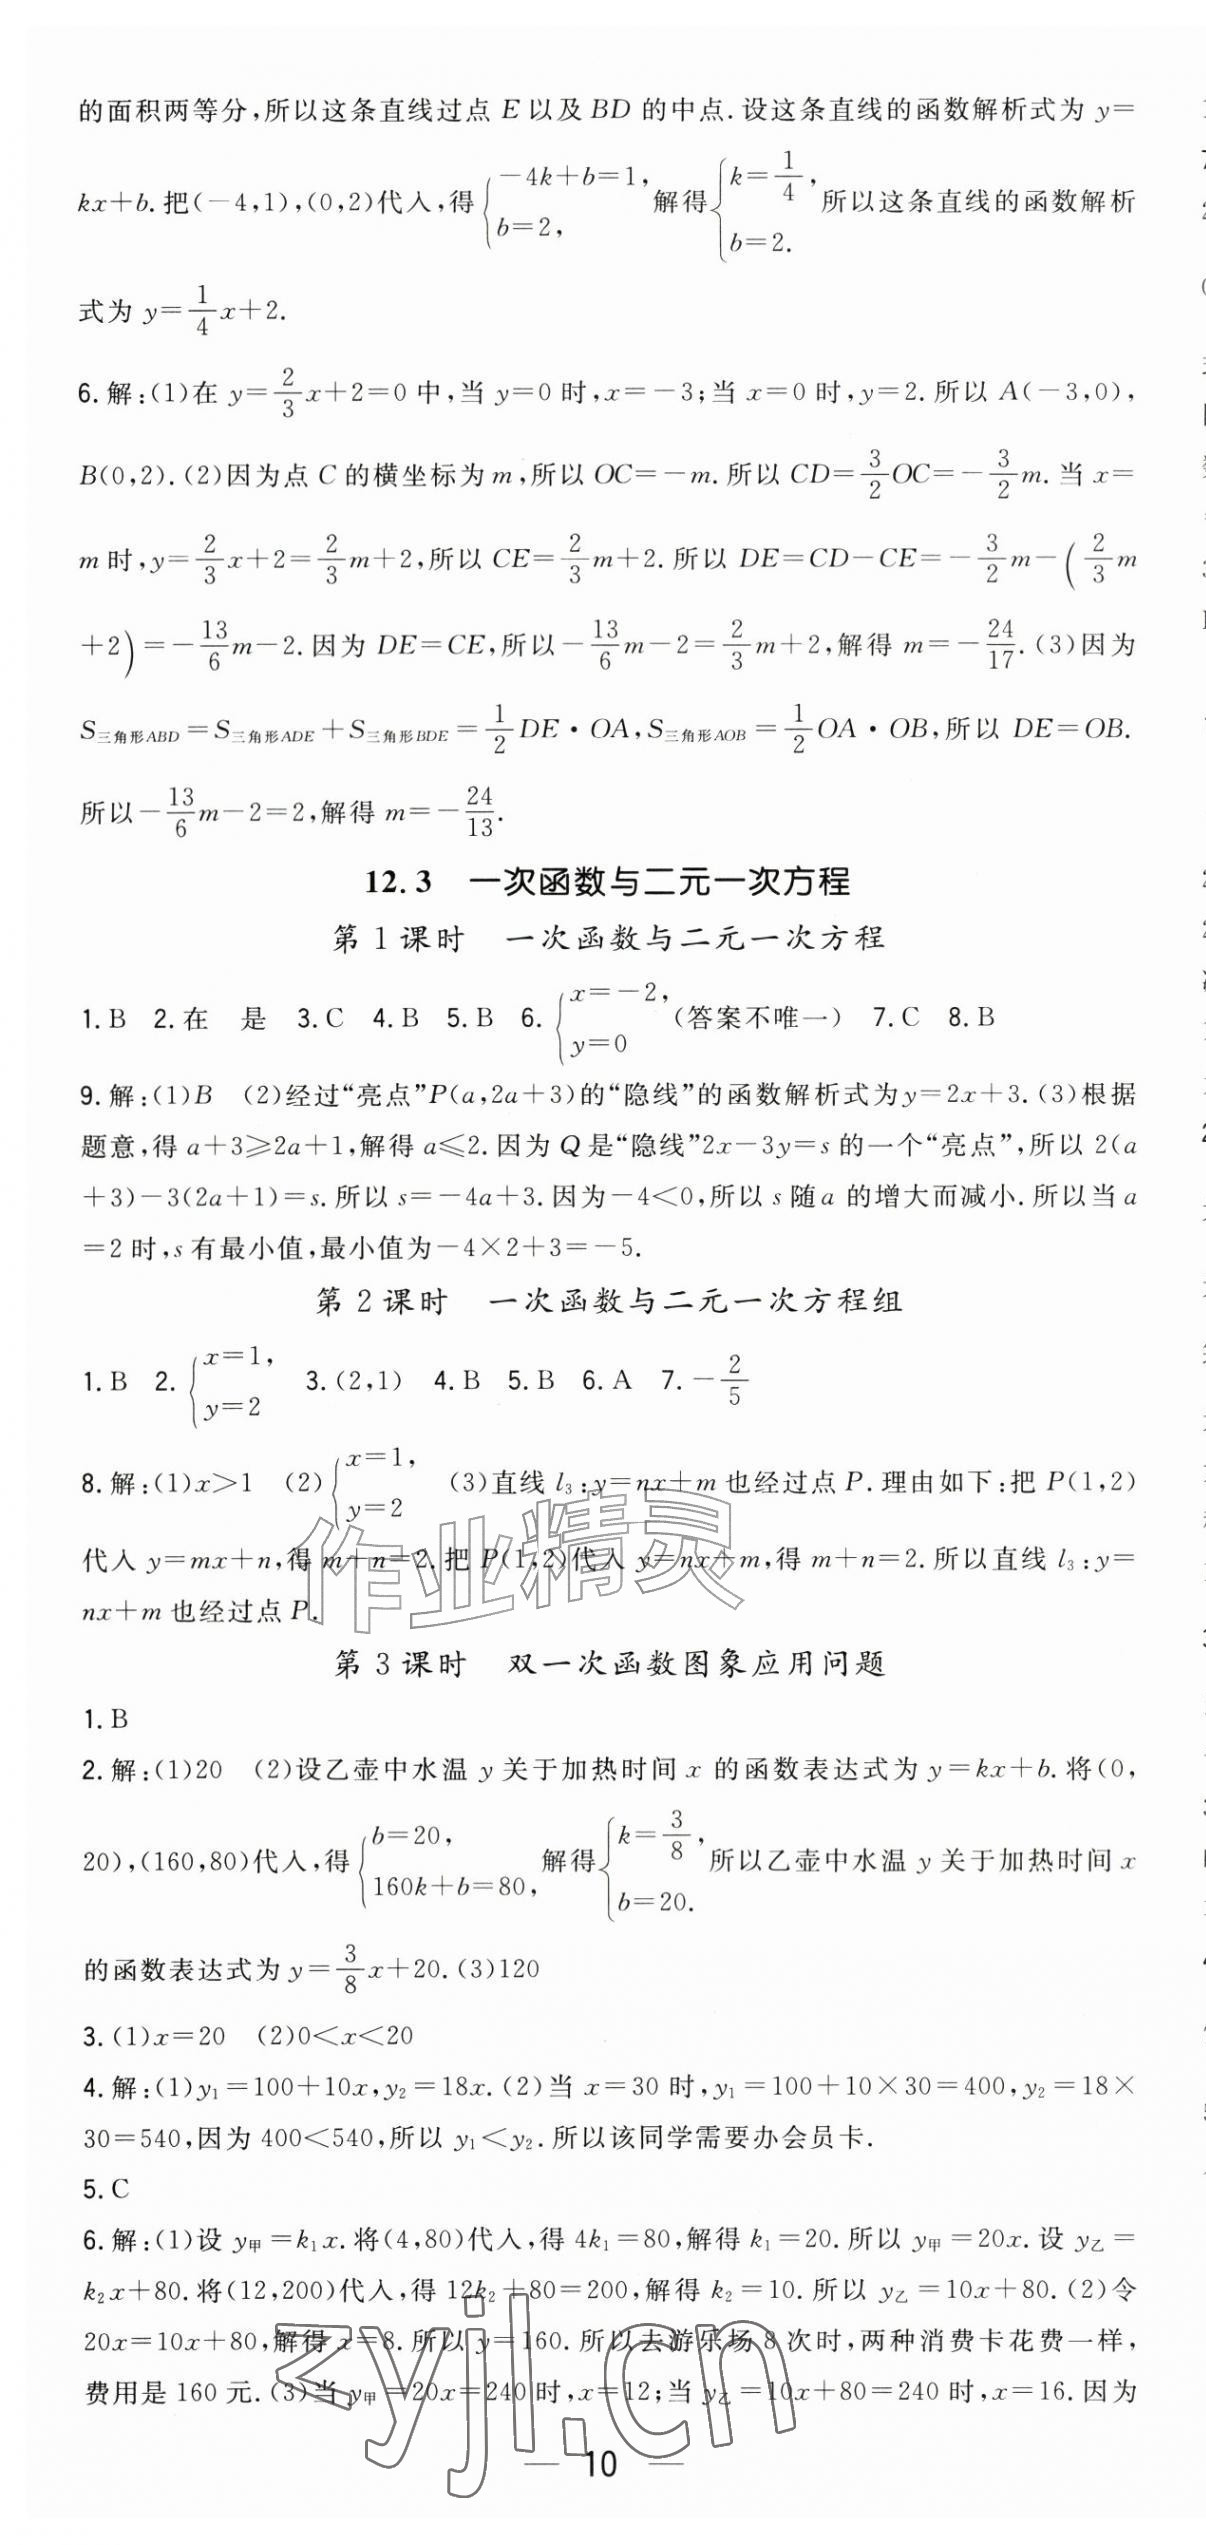 的面积两等分,所以这条直线过点 E 以及 BD 的中点.设这条直线的函数解析式为 y=
kx+b.把(-4,1),(0,2)代入,得{-4k+b=1, b=2, 解得{k=1/4, b=2. 所以这条直线的函数解析
式为 y=1/4x+2.
6.解:(1)在 y=2/3x+2=0 中,当 y=0 时,x=-3;当 x=0 时,y=2.所以 A(-3,0),
B(0,2).(2)因为点 C 的横坐标为 m,所以 OC=-m.所以 CD=3/2OC=-3/2m.当 x=
m 时,y=2/3x+2=2/3m+2,所以 CE=2/3m+2.所以 DE=CD-CE=-3/2m-(2/3m
+2)=-13/6m-2.因为 DE=CE,所以-13/6m-2=2/3m+2,解得 m=-24/17.(3)因为
S三角形ABD=S三角形ADE+S三角形BDE=1/2DE·OA,S三角形AOB=1/2OA·OB,所以 DE=OB.
所以-13/6m-2=2,解得 m=-24/13.
12.3 一次函数与二元一次方程
第 1 课时 一次函数与二元一次方程
1.B 2.在 是 3.C 4.B 5.B 6.{x=-2, y=0 (答案不唯一) 7.C 8.B
9.解:(1)B (2)经过“亮点”P(a,2a+3)的“隐线”的函数解析式为y=2x+3.(3)根据
题意,得 a+3≥2a+1,解得 a≤2.因为 Q 是“隐线”2x-3y=s 的一个“亮点”,所以 2(a
+3)-3(2a+1)=s.所以 s=-4a+3.因为-4<0,所以 s 随 a 的增大而减小.所以当 a
=2 时,s 有最小值,最小值为-4×2+3=-5.
第 2 课时 一次函数与二元一次方程组
1.B 2.{x=1, y=2 3.(2,1) 4.B 5.B 6.A 7.-2/5
8.解:(1)x>1 (2){x=1, y=2 (3)直线 l₃:y=nx+m 也经过点 P.理由如下:把 P(1,2)
代入 y=mx+n,得 m+n=2.把 P(1,2)代入 y=nx+m,得 m+n=2.所以直线 l₃:y=
nx+m 也经过点 P.
作业精灵
第 3 课时 双一次函数图象应用问题
1.B
2.解:(1)20 (2)设乙壶中水温 y 关于加热时间 x 的函数表达式为 y=kx+b.将(0,
20),(160,80)代入,得{b=20, 160k+b=80, 解得{k=3/8, b=20. 所以乙壶中水温 y 关于加热时间 x
的函数表达式为 y=3/8x+20.(3)120
3.(1)x=20 (2)0<x<20
4.解:(1)y₁=100+10x,y₂=18x.(2)当 x=30 时,y₁=100+10×30=400,y₂=18×
30=540,因为 400<540,所以 y₁<y₂.所以该同学需要办会员卡.
5.C
6.解:(1)设 y甲=k₁x.将(4,80)代入,得 4k₁=80,解得 k₁=20.所以 y甲=20x.设 y乙=
k₂x+80.将(12,200)代入,得 12k₂+80=200,解得 k₂=10.所以 y乙=10x+80.(2)令
20x=10x+80,解得 x=8.所以 y=160.所以去游乐场 8 次时,两种消费卡花费一样,
费用是 160 元.(3)当 y甲=20x=240 时,x=12;当 y乙=10x+80=240 时,x=16.因为
zyjl.cn
— 10 —